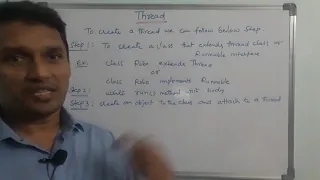 Thread
To create a thread we can follow below step
Step 1: To create a class that extends thread class or
Runnable interface
Ex: class Ribo extends Thread
or
class Ribo implements Runnable
Step 2: write run() method with body
Step 3: create an object to the class and attach to a thread